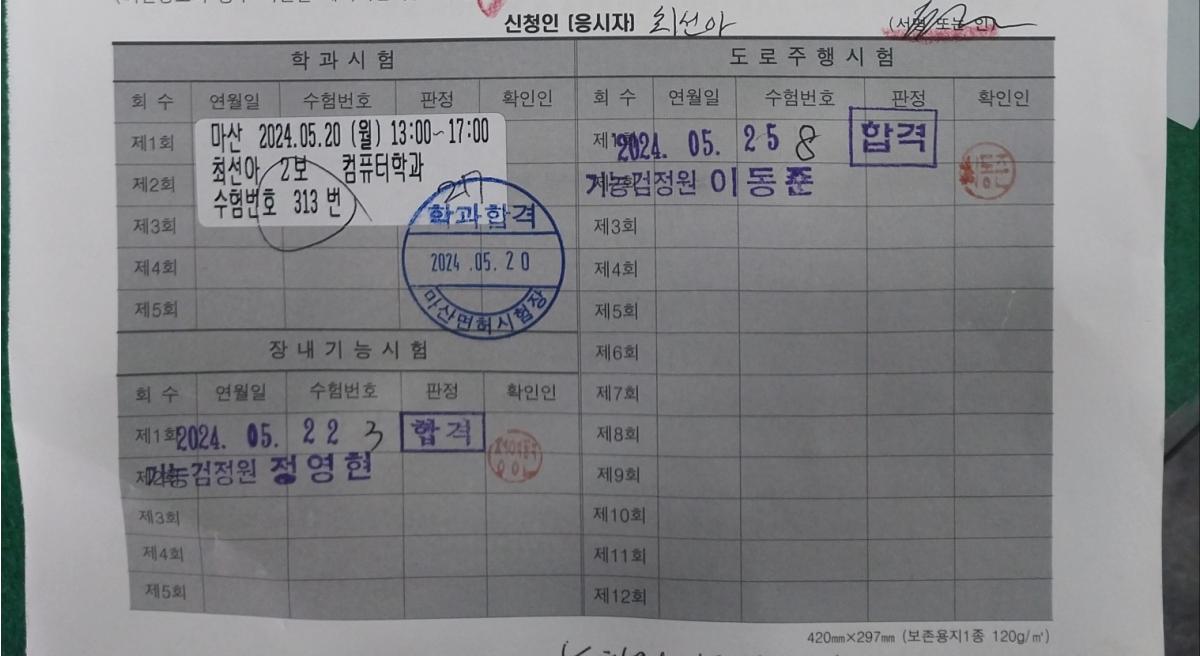 신청인 (응시자) 최선아 (서명 또는 인)
학과시험
회 수 연월일 수험번호 판정 확인인
제1회
제2회
제3회
제4회
제5회
마산 2024.05.20 (월) 13:00~17:00
최선아 2보 컴퓨터학과
수험번호 313 번
학과합격
2024.05.20
마산면허시험장
장내기능시험
회 수 연월일 수험번호 판정 확인인
제1회 2024. 05. 22 3 합격
제2회 기능검정원 정영현
제3회
제4회
제5회
도로주행시험
회 수 연월일 수험번호 판정 확인인
제1회 2024. 05. 25 8 합격
기능검정원 이동준
제3회
제4회
제5회
제6회
제7회
제8회
제9회
제10회
제11회
제12회
420㎜×297㎜ (보존용지1종 120g/㎡)